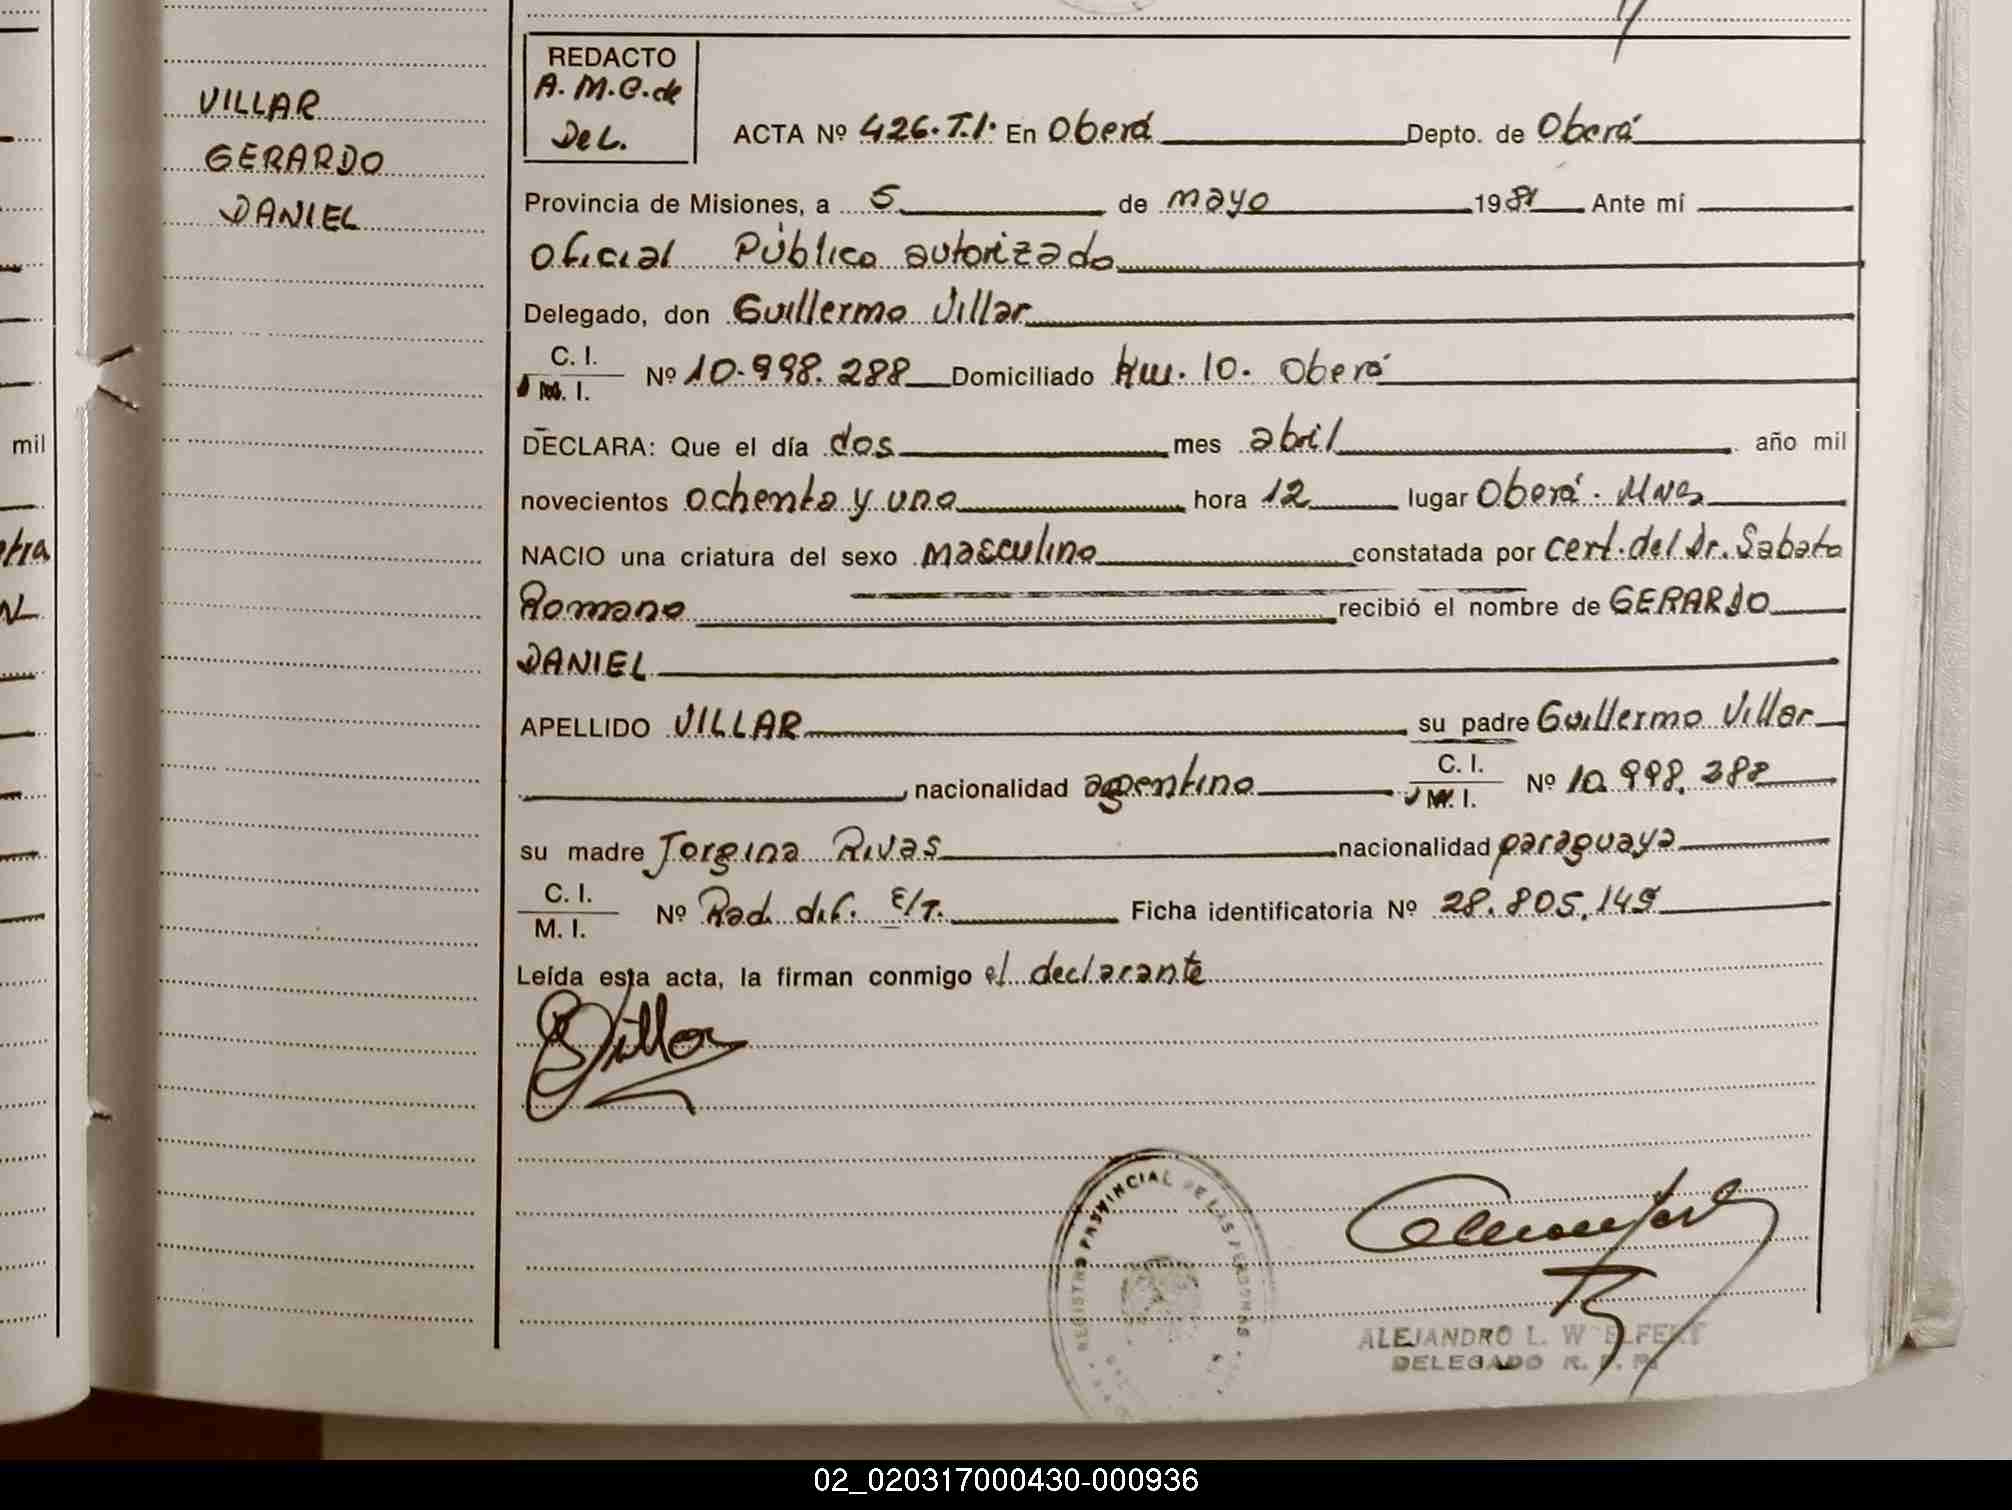 VILLAR
GERARDO
DANIEL
mil
REDACTO
A. M. C. de
De L.
ACTA Nº 426. T. I. En Oberá Depto. de Oberá
Provincia de Misiones, a 5 de mayo 1981 Ante mí
Oficial Público autorizado
Delegado, don Guillermo Villar
C. I.
M. I. Nº 10.998.288 Domiciliado Km. 10. Oberá
DECLARA: Que el día dos mes abril año mil
novecientos ochenta y uno hora 12 lugar Oberá. Mnes
NACIO una criatura del sexo masculino constatada por cert. del Dr. Sabato
Romano recibió el nombre de GERARDO
DANIEL
APELLIDO VILLAR su padre Guillermo Villar
nacionalidad argentino C. I.
M. I. Nº 10.998.288
su madre Jorgina Rivas nacionalidad paraguaya
C. I.
M. I. Nº Rad. def. E/T. Ficha identificatoria Nº 28.805.149
Leída esta acta, la firman conmigo el declarante
Villar
REGISTRO PROVINCIAL DE LAS PERSONAS
ALEJANDRO L. W ELFERT
DELEGADO R. P. P.
02_020317000430-000936